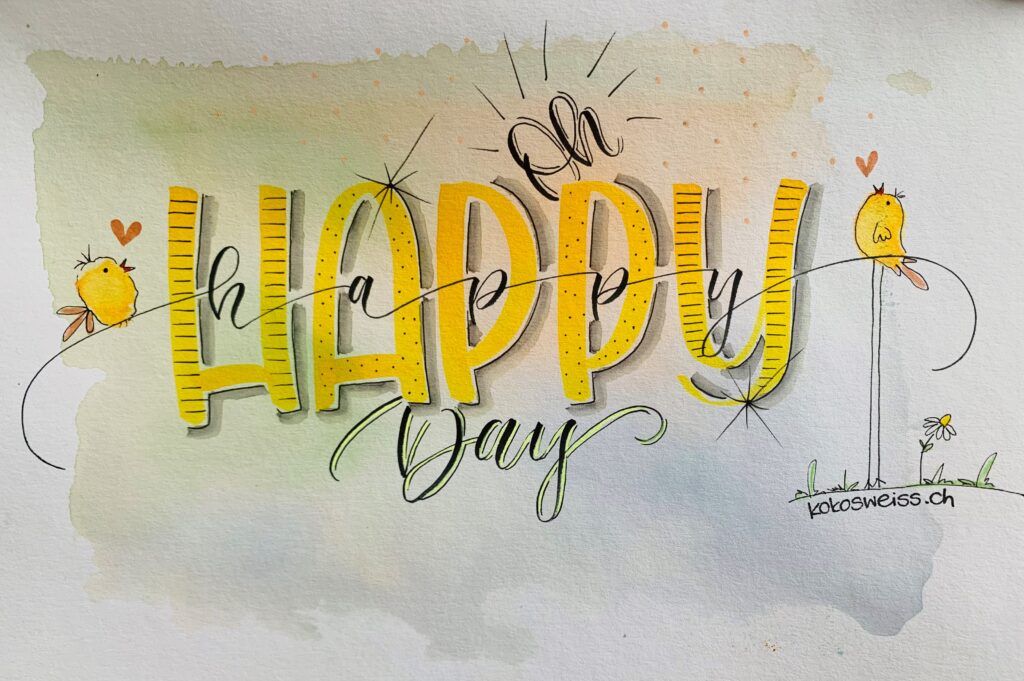 Oh
HAPPY
happy
Day
kokosweiss.ch